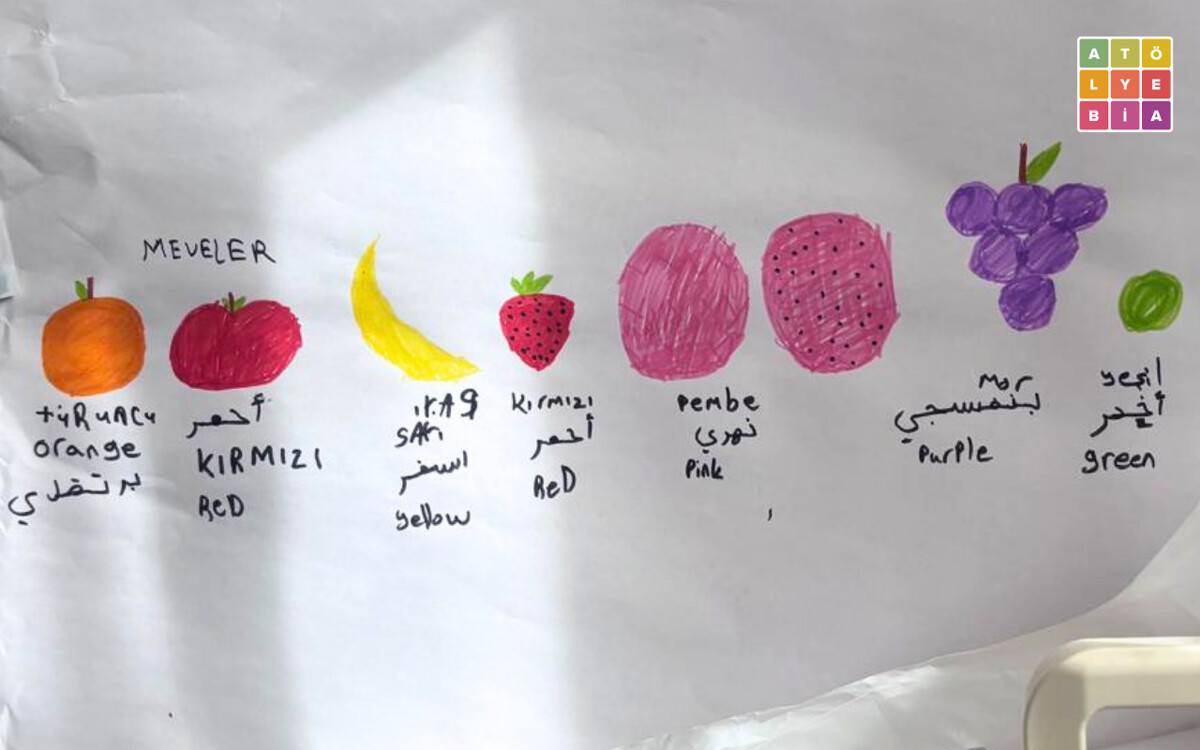 A T Ö
L Y E
B İ A
MEVELER
türuncu
orange
برتقلي
أحمر
KIRMIZI
ReD
SARı
اسفر
yellow
Kırmızı
أحمر
ReD
Pembe
زهري
Pink
Mor
بنفسجي
PurPle
yeşil
أخدر
green